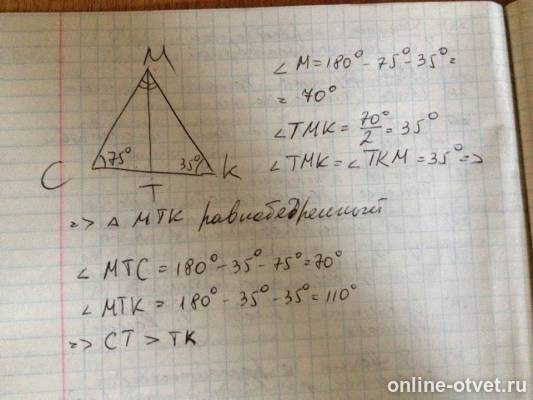 M
∠ M = 180° - 75° - 35° =
= 70°
∠ TMK = 70°/2 = 35°
∠ TMK = ∠ TKM = 35° =>
75°
35°
C
T
K
=> △ MTK равнобедренный
∠ MTC = 180° - 35° - 75° = 70°
∠ MTK = 180° - 35° - 35° = 110°
=> CT > TK
online-otvet.ru